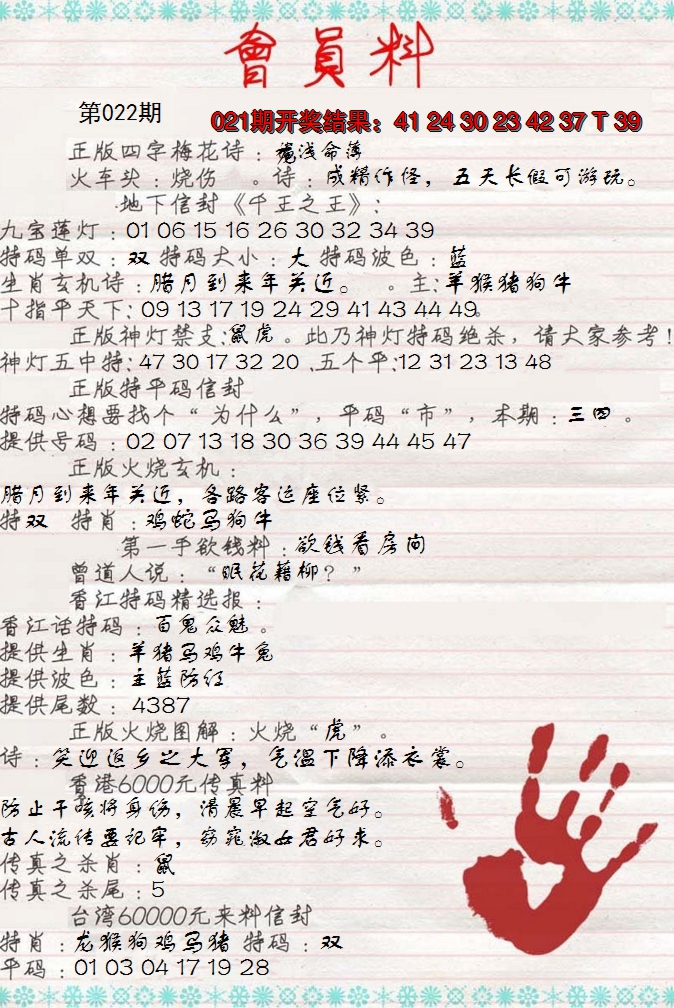 會員料
第022期
021期开奖结果：41 24 30 23 42 37 T 39
正版四字梅花诗：缘浅命薄
火车头：烧伤 。诗：成精作怪，五天长假可游玩。
地下信封《千王之王》：
九宝莲灯：01 06 15 16 26 30 32 34 39
特码单双：双 特码大小：大 特码波色：蓝
生肖玄机诗：腊月到来年关近。 。主：羊猴猪狗牛
十指平天下：09 13 17 19 24 29 41 43 44 49。
正版神灯禁支：鼠虎。此乃神灯特码绝杀，请大家参考！
神灯五中特：47 30 17 32 20 .五个平：12 31 23 13 48
正版特平码信封
特码心想要找个“为什么”，平码“市”，本期：三四。
提供号码：02 07 13 18 30 36 39 44 45 47
正版火烧玄机：
腊月到来年关近，各路客运座位紧。
特双 特肖：鸡蛇马狗牛
第一手欲钱料：欲钱看房间
曾道人说：“眠花藉柳？”
香江特码精选报：
香江话特码：百鬼众魅。
提供生肖：羊猪马鸡牛兔
提供波色：主蓝防红
提供尾数：4387
正版火烧图解：火烧“虎”。
诗：笑迎返乡之大军，气温下降添衣裳。
香港6000元传真料
防止干咳将身伤，清晨早起空气好。
古人流传要记牢，窈窕淑女君好求。
传真之杀肖：鼠
传真之杀尾：5
台湾60000元来料信封
特肖：龙猴狗鸡马猪 特码：双
平码：01 03 04 17 19 28